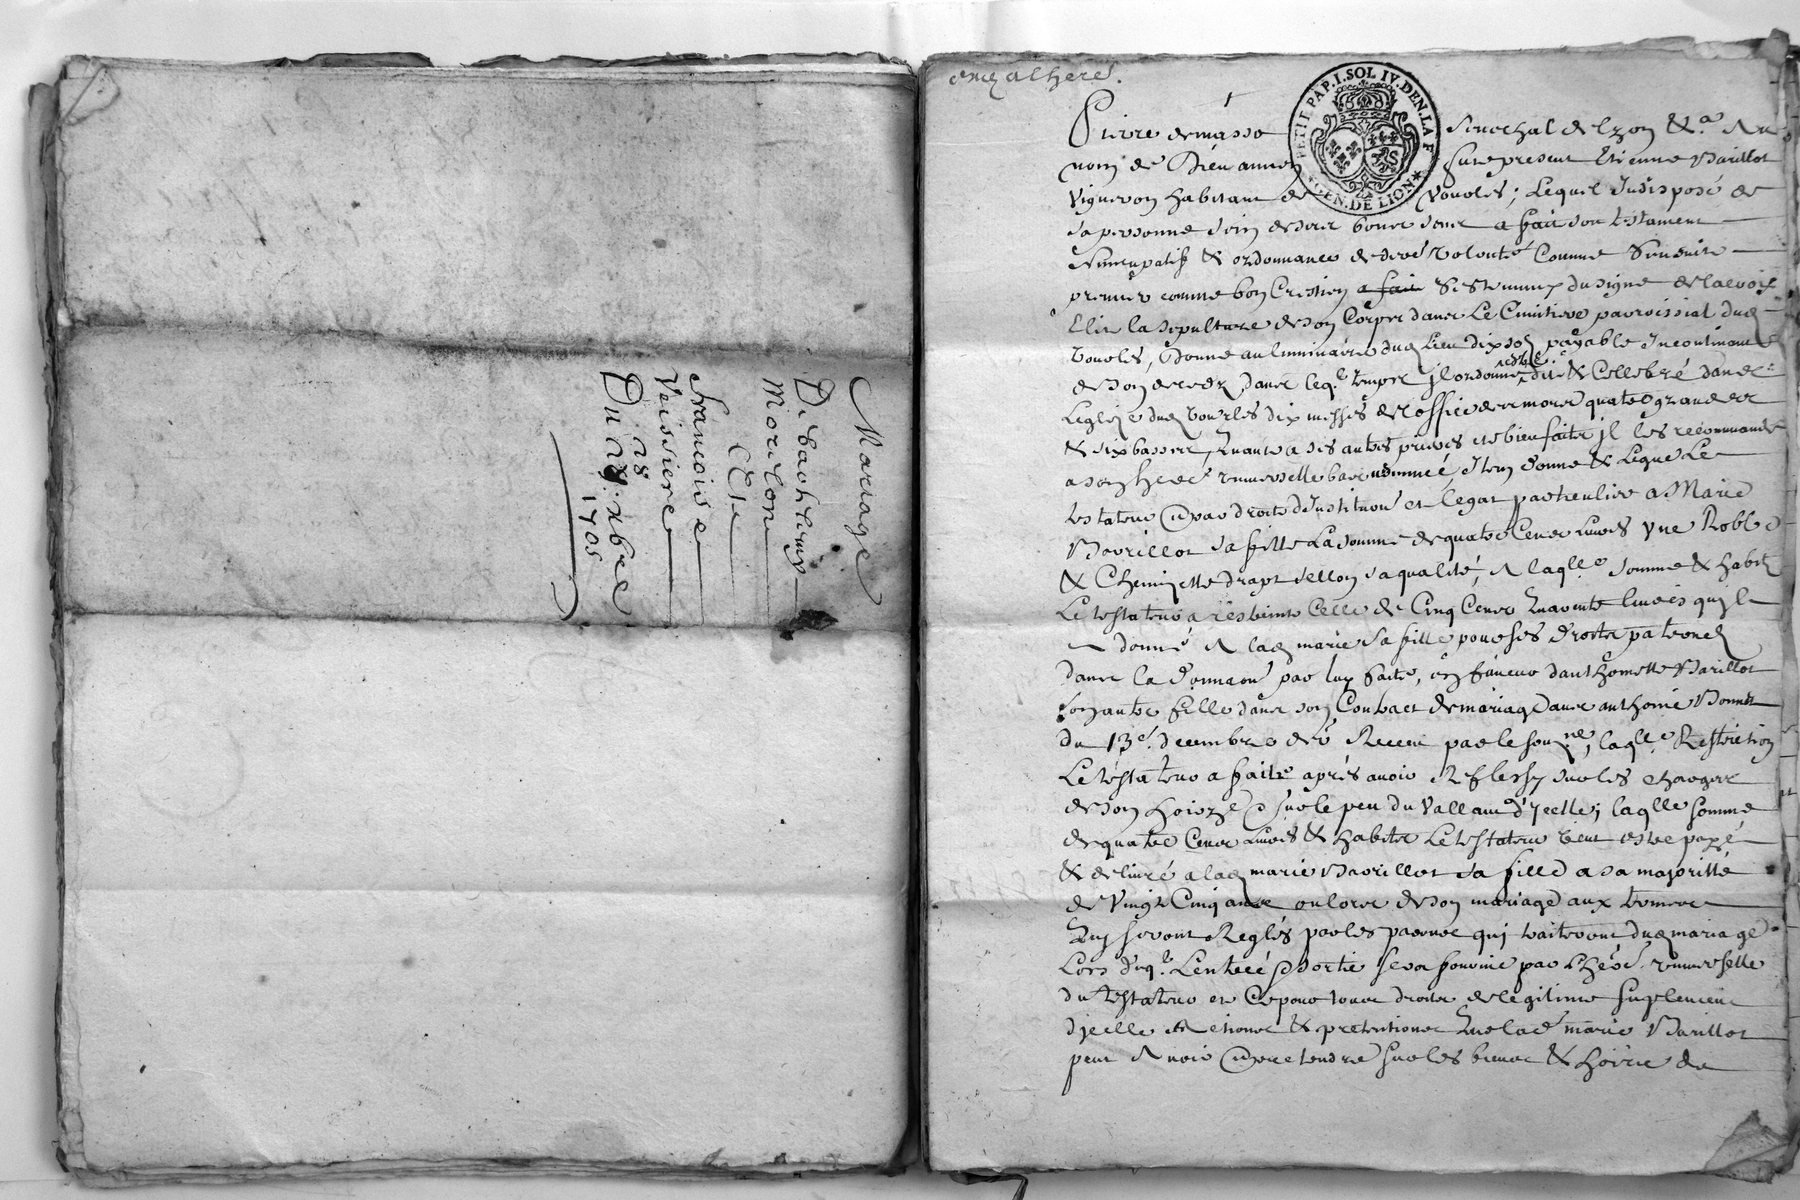 Mariage
De Barthelemy
Morelon
Et
francoise
Veissiere
28
Du 28. xbre
1705
PETIT PAP. I. SOL IV. DEN. LA F
GEN. DE LION
Pierre demasso Senechal de Lyon &.a Au
nom de Dieu amen fut present Etienne Barillot
Vigneron habitant de Vourles; Lequel Indisposé de
sa personne sain de ses bons sens a fait son testament
Nuncupatif & ordonnance de derre volonté Comme Sensuit
premier comme bon Crestien a fait du signe de la croix
Elit la sepulture de son Corps dans Le Cimitiere parroissial dud
Vourles, donne au luminaire dud Lieu dix sols payable Incontinant
de son deceds, dans leq.l temps il ordonne dit & Cellebré dans
Leglise dud Vourles dix messes de loffice des mors quatre grandes
& six basses, Quant a ses autres prieres et bienfaits jl les recommande
a son here universelle bas nommée, Item donne & Legue Le
testateur par droit d'institution et legat particulier a Marie
Barillot sa fille La somme de quatre Cens Livres une Robbe
& Chemizette drapt sellon sa qualité, A laq.lle somme & habits
Le testateur a restraint Celle de Cinq Cens quarente livres quil
a donné A lad marie sa fille pour ses droits paternels
dans la donnaon par luy faite, en faueur danthomette Barillot
son autre fille dans son Contract de mariage auec anthoine Bonnet
du 13e. decembre der Receu par le sou.né, laq.lle Restriction
Le testateur a faite aprés auoir Reflechy sur les charges
de son hoirye & sur le peu du Vallant d'jcelle; laq.lle somme
de quatre Cens Livres & habits Le testateur veut estre payé
& deliuré a lad marie Barillot sa fille a sa majoritté
de Vingt Cinq ans ou lors de son mariage aux termes
Quy seront Reglés par les parens qui traiteront dud mariage
Lors duq.l Lentrée & sortie sera fournie par L'here universelle
du testateur et Ce pour tous droits de legitime suplement
d'jcelle Actions & pretentions que lad marie Barillot
peut Auoir & pretendre sur les biens & hoirie de